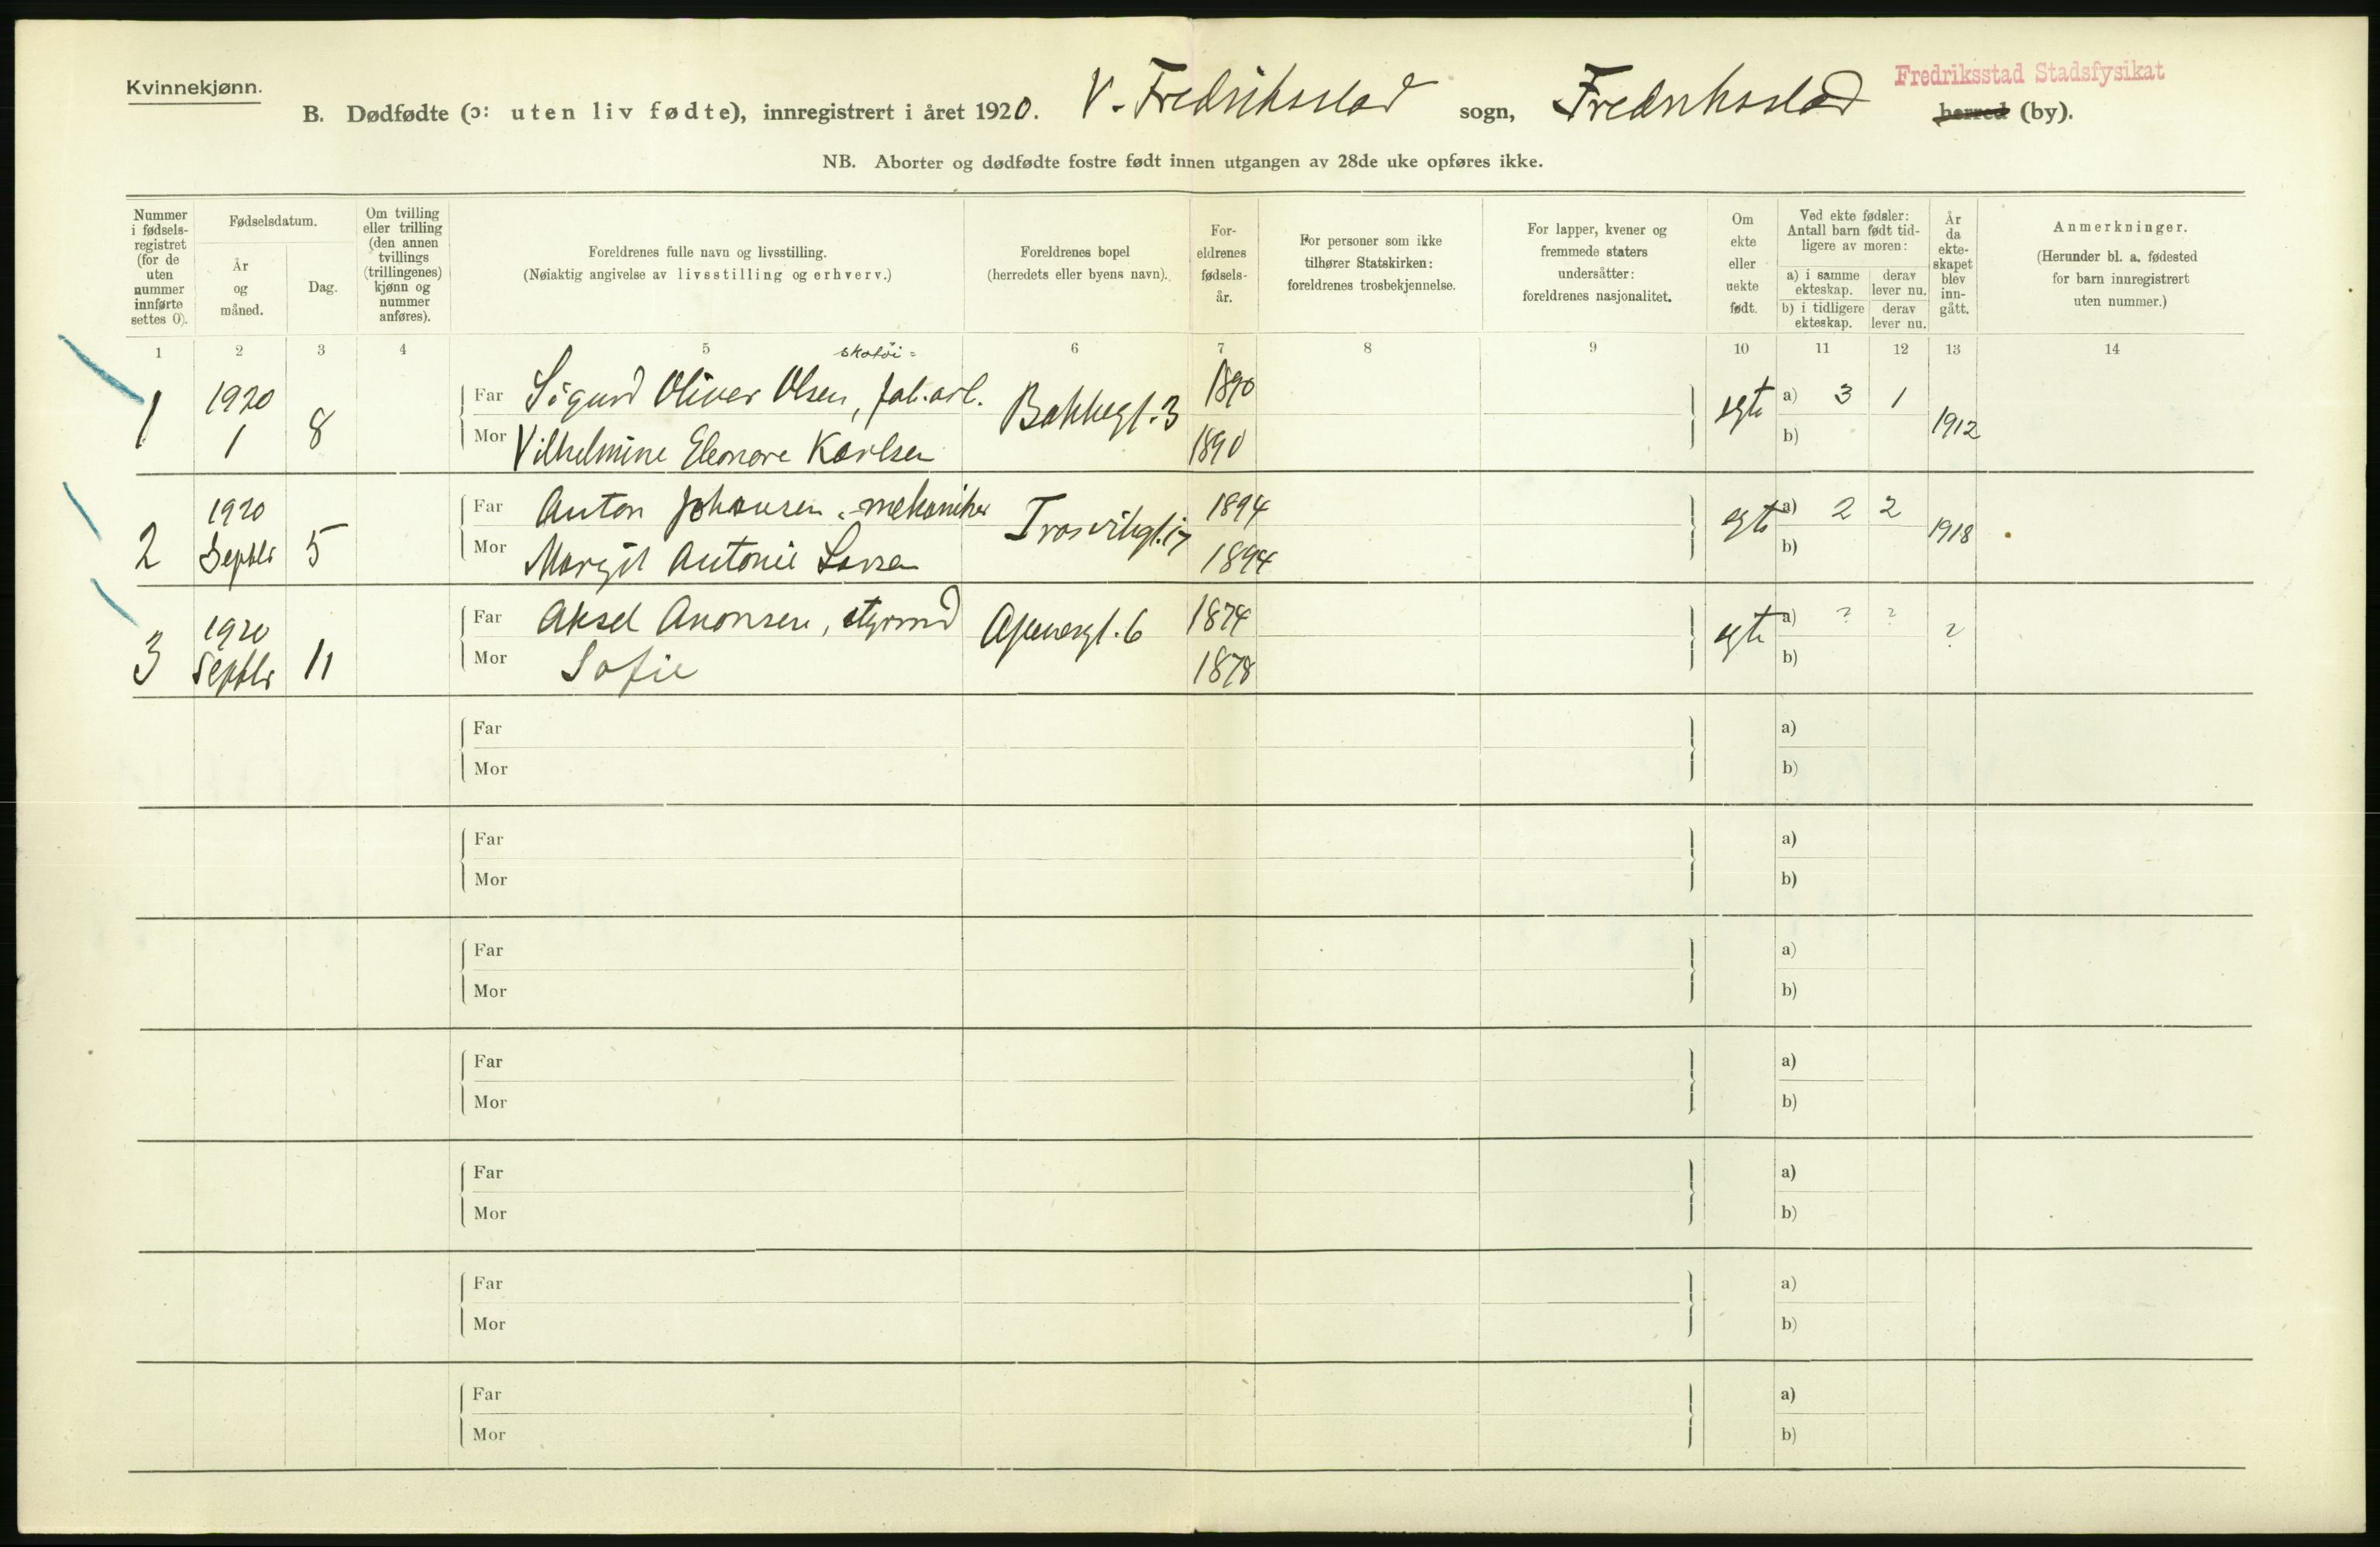 Kvinnekjønn.
Fredriksstad Stadsfysikat
B. Dødfødte (ɔ: uten liv fødte), innregistrert i året 1920. V. Fredriksstad sogn, Fredriksstad herred (by).
NB. Aborter og dødfødte fostre født innen utgangen av 28de uke opføres ikke.
Nummer i fødsels-registret (for de uten nummer innførte settes 0).
Fødselsdatum.
År og måned.
Dag.
Om tvilling eller trilling (den annen tvillings (trillingenes) kjønn og nummer anføres).
Foreldrenes fulle navn og livsstilling.
(Nøiaktig angivelse av livsstilling og erhverv.)
Foreldrenes bopel
(herredets eller byens navn).
For-eldrenes fødsels-år.
For personer som ikke tilhører Statskirken: foreldrenes trosbekjennelse.
For lapper, kvener og fremmede staters undersåtter: foreldrenes nasjonalitet.
Om ekte eller uekte født.
Ved ekte fødsler: Antall barn født tid-ligere av moren:
a) i samme ekteskap.
derav lever nu.
b) i tidligere ekteskap.
derav lever nu.
År da ekte-skapet blev inn-gått.
Anmerkninger.
(Herunder bl. a. fødested for barn innregistrert uten nummer.)
1 2 3 4 5 6 7 8 9 10 11 12 13 14
skotöi=
1 1920 1 8 Far Sigurd Oliver Olsen, fab.arb. Bakkegt. 3 1890 egte a) 3 1 1912
Mor Vilhelmine Eleonore Karlsen 1890 b)
2 1920 Septbr 5 Far Anton Johansen, mekaniker Trosvikgt. 17 1894 egte a) 2 2 1918
Mor Margit Antonie 1894 b)
3 1920 Septbr 11 Far Aksel Aronsen, styrmd 6 1874 egte a) ? ? ?
Mor Sofie 1878 b)
Far a)
Mor b)
Far a)
Mor b)
Far a)
Mor b)
Far a)
Mor b)
Far a)
Mor b)
Far a)
Mor b)
Far a)
Mor b)